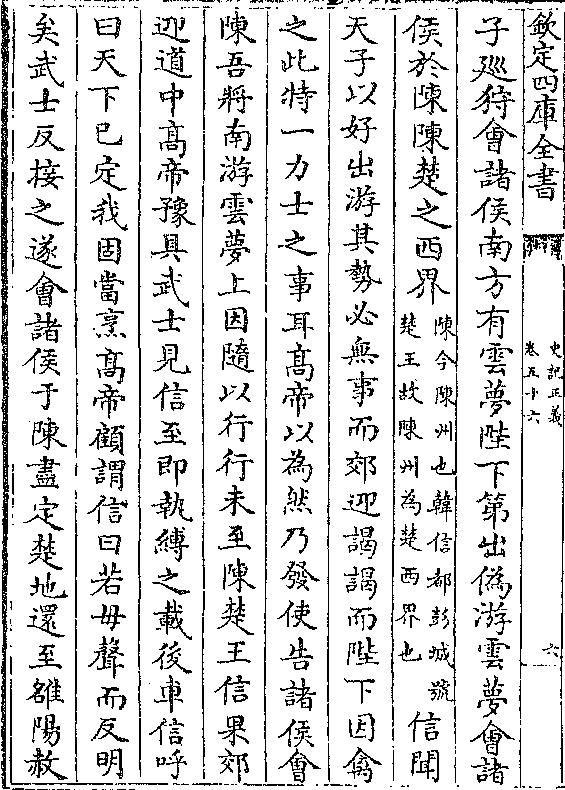 欽定四庫全書
史記正義
卷五十六
六
子廵狩會諸侯南方有雲夢陛下第出偽游雲夢會諸
侯於陳陳楚之西界陳今陳州也韓信都彭城號楚王故陳州為楚西界也信聞
天子以好出游其勢必無事而郊迎謁謁而陛下因禽
之此特一力士之事耳高帝以為然乃發使告諸侯會
陳吾將南游雲夢上因隨以行行未至陳楚王信果郊
迎道中高帝豫具武士見信至即執縛之載後車信呼
曰天下已定我固當烹高帝顧謂信曰若毋聲而反明
矣武士反接之遂會諸侯于陳盡定楚地還至雒陽赦